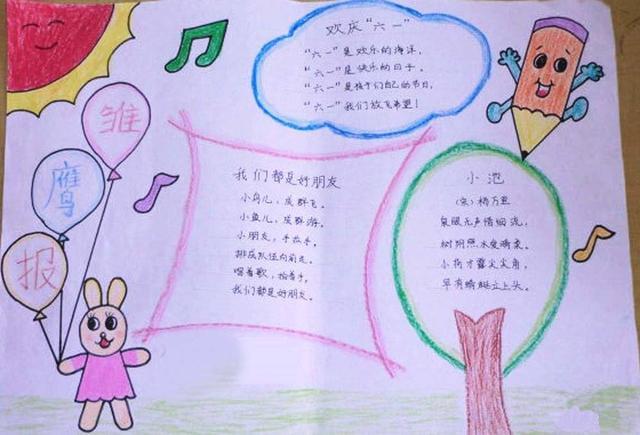 雏
鹰
报
欢庆“六一”
“六一”是欢乐的海洋，
“六一”是快乐的日子。
“六一”是孩子们自己的节日，
“六一”我们放飞希望！
我们都是好朋友
小鸟儿，成群飞。
小鱼儿，成群游。
小朋友，手拉手。
排成队伍向前走。
唱着歌，拍着手，
我们都是好朋友。
小池
（宋）杨万里
泉眼无声惜细流，
树阴照水爱晴柔。
小荷才露尖尖角，
早有蜻蜓立上头。